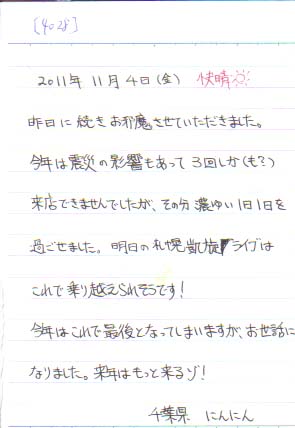 [4028]
2011年 11月4日(金) 快晴
昨日に続きお邪魔させていただきました。
今年は震災の影響もあって3回しか(も?)
来店できませんでしたが、その分濃ゆい1日1日を
過ごせました。明日の札幌凱旋ライブは
これで乗り越えられそうです!
今年はこれで最後となってしまいますが、お世話に
なりました。来年はもっと来るゾ!
千葉県 にんにん